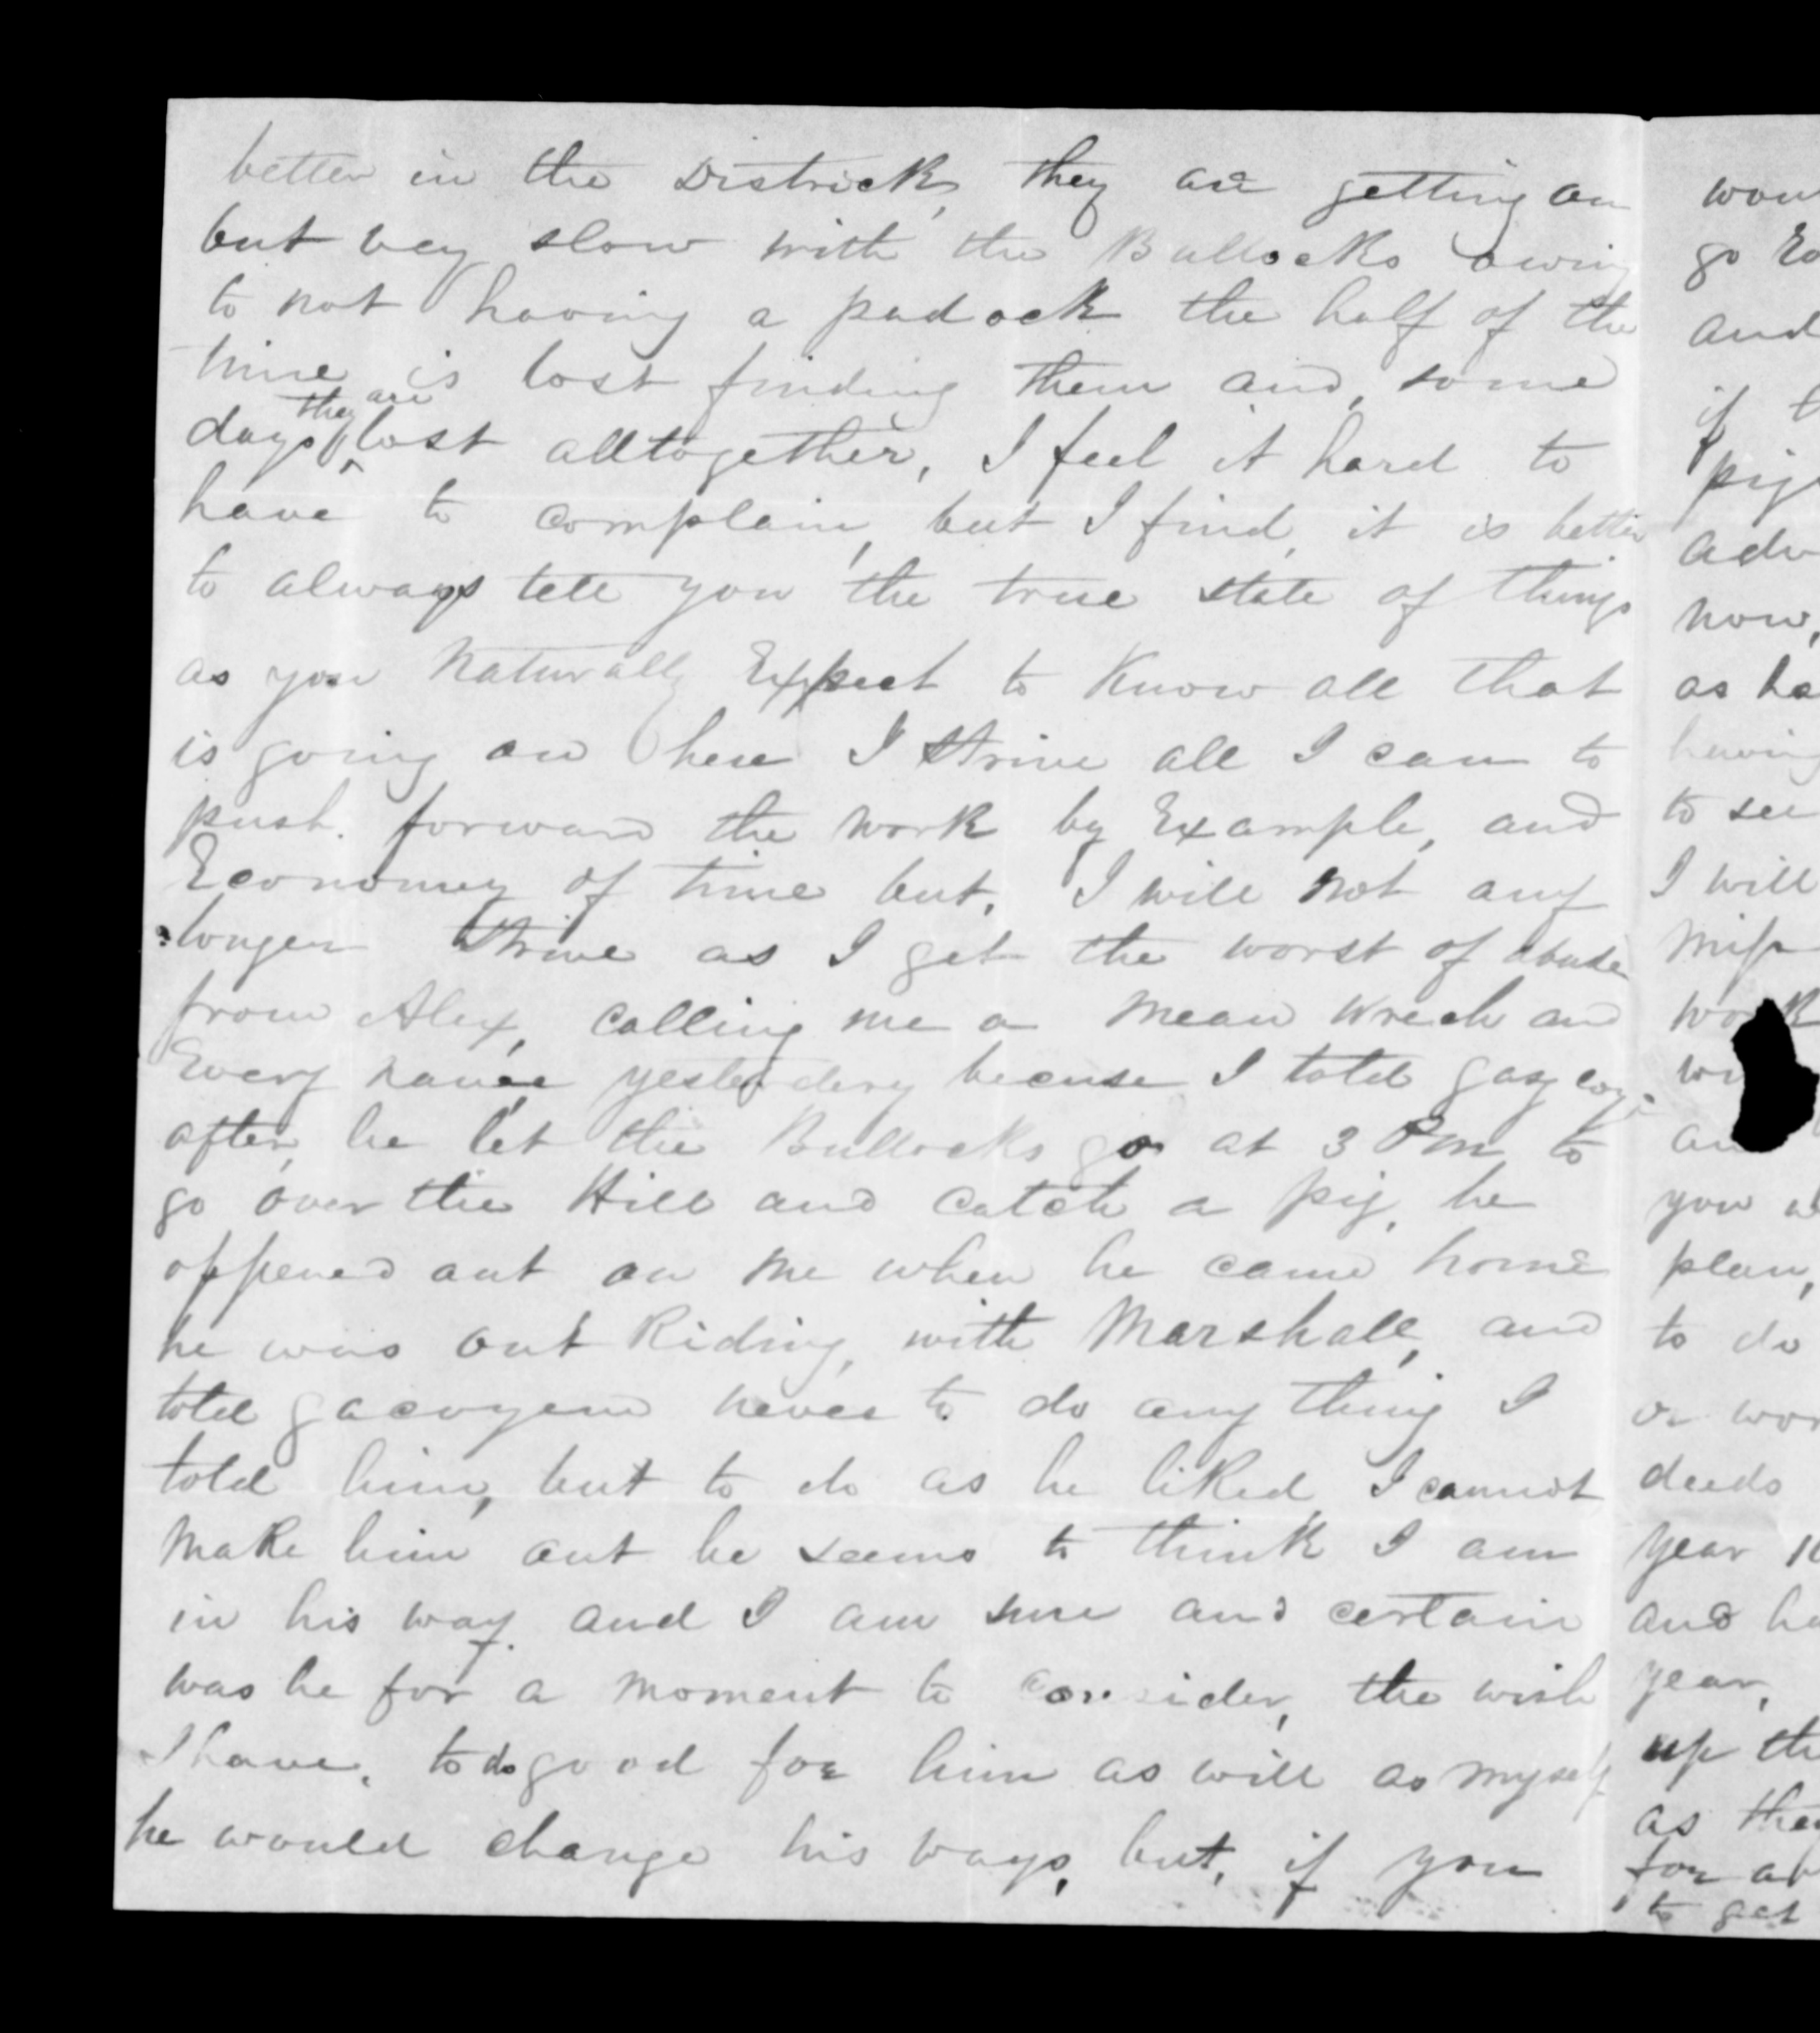 better in the Districk, they are getting on
but vey slow with the Bullocks owing
to not having a padock the half of the
time is lost finding them and, some
days they are lost alltogether, I feel it hard to
have to complain, but I find, it is better
to always tell you the true state of things
as you Naturally Expect to Know all that
is going on here I strive all I can to
push forward the work by Example, and
Economey of time but, I will not any
longer strive as I get the worst of abuse
from Alex, calling me a mean wrech and
Every name yesterday becuse I told
after he let the Bullocks go at 3 Pm to
go over the Hill and catch a pig, he
oppened out on me when he came home
he was out Riding, with Marshall, and
told never to do any thing I
told him, but to do as he liked I cannot
make him out he seems to think I am
in his way and I am sure and certain
was he for a moment to consider, the wish
I have, to do good for him as will as myself
he would change his ways, but, if you
go
and
if
now,
as
having
to see
I will
Miss
work
you
plan,
to do
or
deeds
year
and
year,
up
as
for
to get